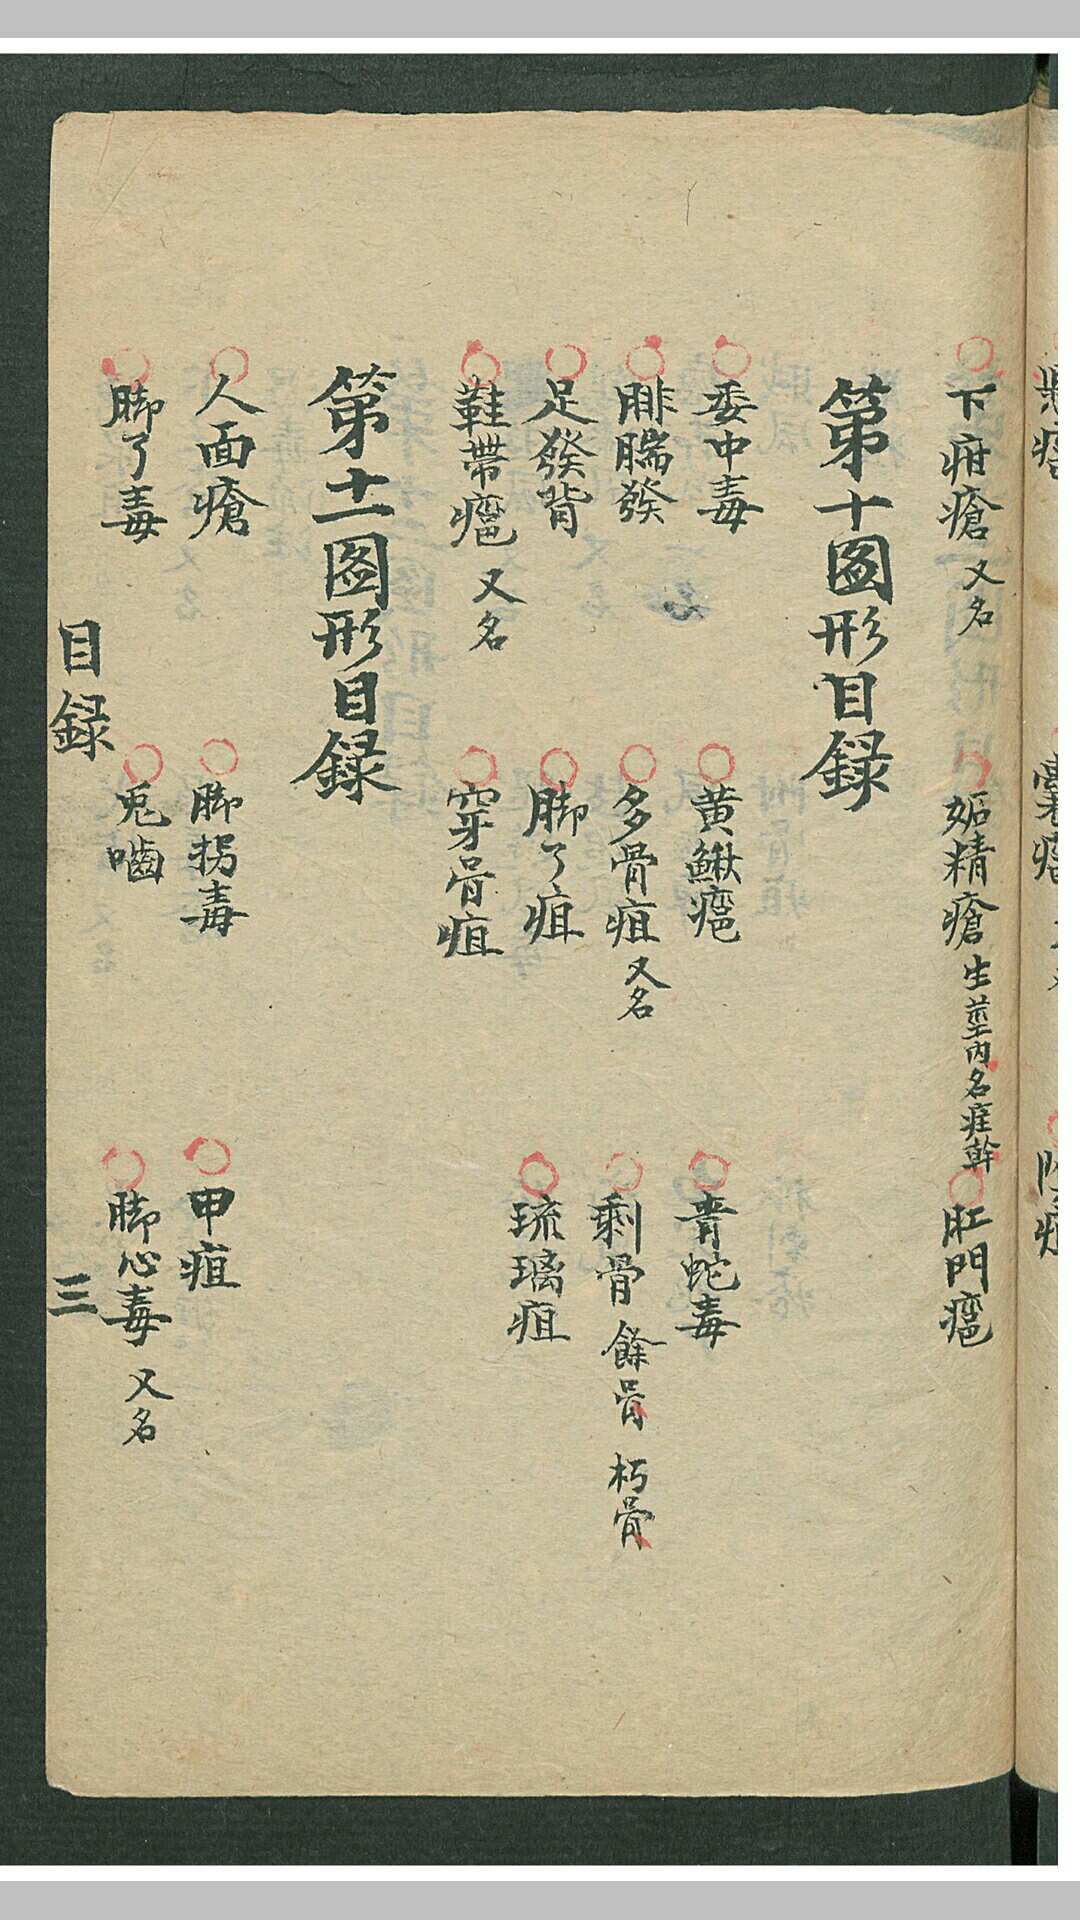 下疳瘡 又名 妬精瘡 生莖內名疰幹 肛門癰
第十图形目録
委中毒 黃鰍癰 青蛇毒
腓腨發 多骨疽 又名 剩骨 餘骨 朽骨
足發背 脚了疽 琉璃疽
鞋帶癰 又名 穿骨疽
第十一图形目録
人面瘡 脚拐毒 甲疽
脚了毒 兎嚙 脚心毒 又名
目録 三